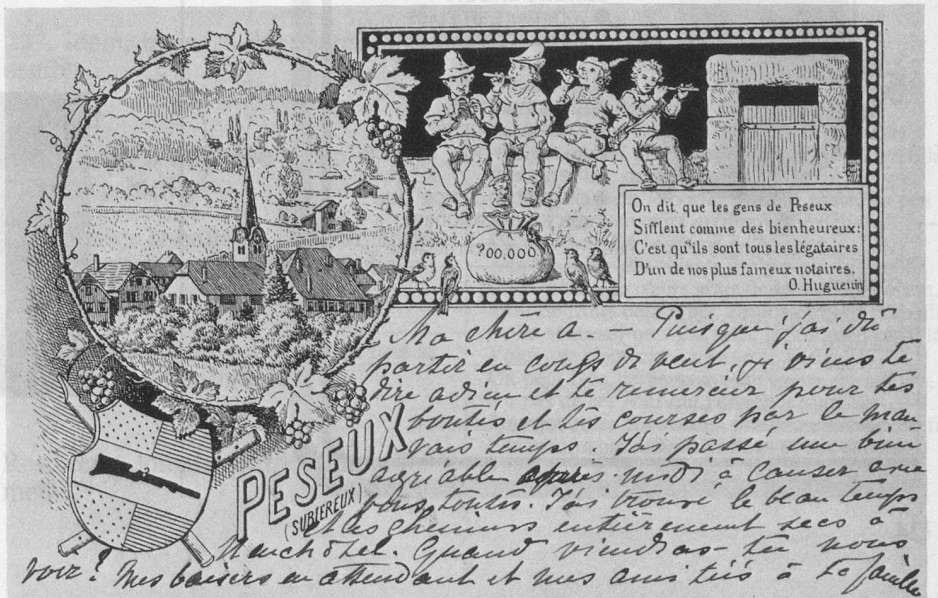 900,000
On dit que les gens de Peseux
Sifflent comme des bienheureux:
C'est qu'ils sont tous les légataires
D'un de nos plus fameux notaires.
O. Huguenin
PESEUX
(SUBIEREUX)
Ma chère A. — Puisque j'ai dû
partir en coup de vent, je viens te
dire adieu et te remercier pour tes
bontés et tes courses par le mau
vais temps. J'ai passé une bien
agréable après-midi à causer avec
vous toutes. J'ai trouvé le beau temps
& les chemins entièrement secs à
Neuchâtel. Quand viendras-tu nous
voir? Mes baisers en attendant et mes amitiés à ta famille